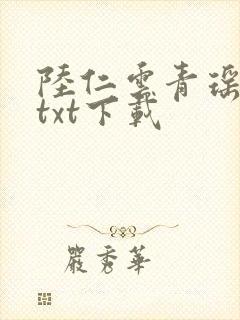 陸仁雲青瑶
txt下載
嚴秀華